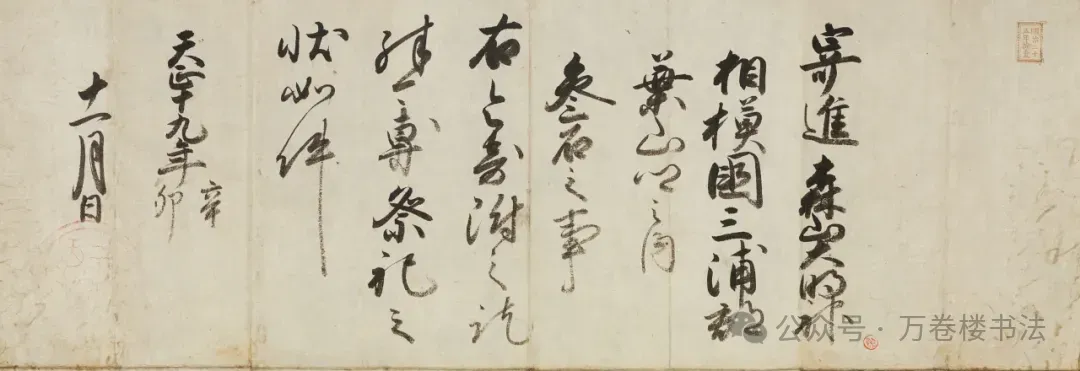 寄進 森山大明神
相模國三浦郡
葉山郷之内
参石之事
右令寄附之訖
殊専祭祀之
状如件
天正十九年辛卯
十一月日
公众号·万卷楼书法